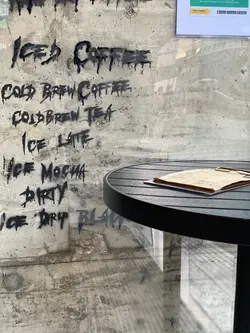 ICED COFFEE
COLD BREW COFFEE
COLDBREW TEA
ICE LATE
ICE MOCHA
DIRTY
ICE DRIP BLACK